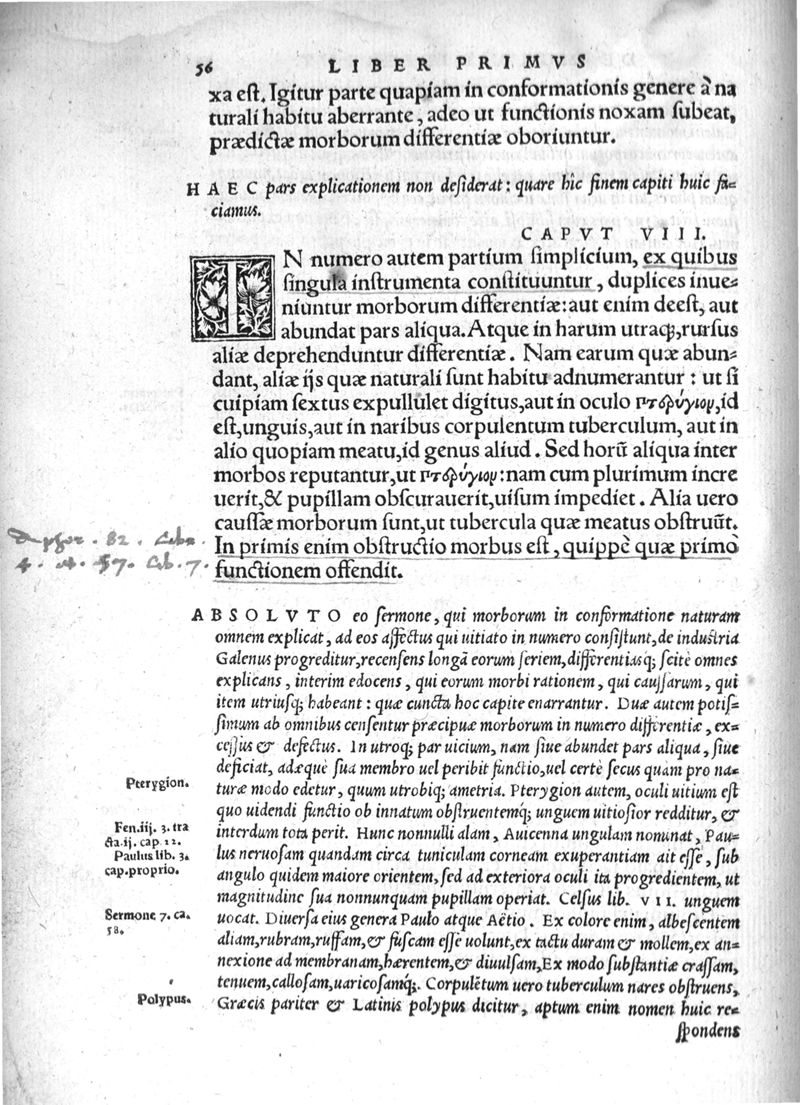 56 LIBER PRIMVS
xa est. Igitur parte quapiam in conformationis genere à na
turali habitu aberrante, adeo ut functionis noxam subeat,
prædictæ morborum differentiæ oboriuntur.
HAEC pars explicationem non desiderat: quare hîc finem capiti huic fa=
ciamus.
CAPVT VIII.
IN numero autem partium simplicium, ex quibus
singula instrumenta constituuntur, duplices inue=
niuntur morborum differentiæ: aut enim deest, aut
abundat pars aliqua. Atque in harum utraq;, rursus
aliæ deprehenduntur differentiæ. Nam earum quæ abun=
dant, aliæ ijs quæ naturali sunt habitu adnumerantur: ut si
cuipiam sextus expullulet digitus, aut in oculo πτερύγιον, id
est, unguis, aut in naribus corpulentum tuberculum, aut in
alio quopiam meatu, id genus aliud. Sed horū aliqua inter
morbos reputantur, ut πτερύγιον: nam cum plurimum incre
uerit, & pupillam obscurauerit, uisum impediet. Alia uero
caussæ morborum sunt, ut tubercula quæ meatus obstruūt.
In primis enim obstructio morbus est, quippè quæ primò
functionem offendit.
Aphor. 82. Lib.
4. et 57. Lib. 7.
ABSOLVTO eo sermone, qui morborum in conformatione naturam
omnem explicat, ad eos affectus qui uitiato in numero consistunt, de industria
Galenus progreditur, recensens longā eorum seriem, differentiasq; scitè omnes
explicans, interim edocens, qui eorum morbi rationem, qui caussarum, qui
item utriusq; habeant: quæ cuncta hoc capite enarrantur. Duæ autem potis=
simum ab omnibus censentur præcipuæ morborum in numero differentiæ, ex=
cessus & defectus. In utroq; par uicium, nam siue abundet pars aliqua, siue
deficiat, adæquè sua membro uel peribit functio, uel certè secus quam pro na=
turæ modo edetur, quum utrobiq; ametria. Pterygion autem, oculi uitium est
quo uidendi functio ob innatum obstruentemq́; unguem uitiosior redditur, &
interdum tota perit. Hunc nonnulli alam, Auicenna ungulam nominat, Pau=
lus neruosam quandam circa tuniculam corneam exuperantiam ait esse, sub
angulo quidem maiore orientem, sed ad exteriora oculi ita progredientem, ut
magnitudine sua nonnunquam pupillam operiat. Celsus lib. VII. unguem
uocat. Diuersa eius genera Paulo atque Aëtio. Ex colore enim, albescentem
aliam, rubram, ruffam, & fuscam esse uolunt, ex tactu duram & mollem, ex an=
nexione ad membranam, hærentem, & diuulsam, Ex modo substantiæ crassam,
tenuem, callosam, uaricosamq́;. Corpulētum uero tuberculum nares obstruens,
Græcis pariter & Latinis polypus dicitur, aptum enim nomen huic re=
spondens
Pterygion.
Fen. iij. 3. tra
cta. ij. cap. 22.
Paulus lib. 3.
cap. proprio.
Sermone 7. ca.
58.
Polypus.